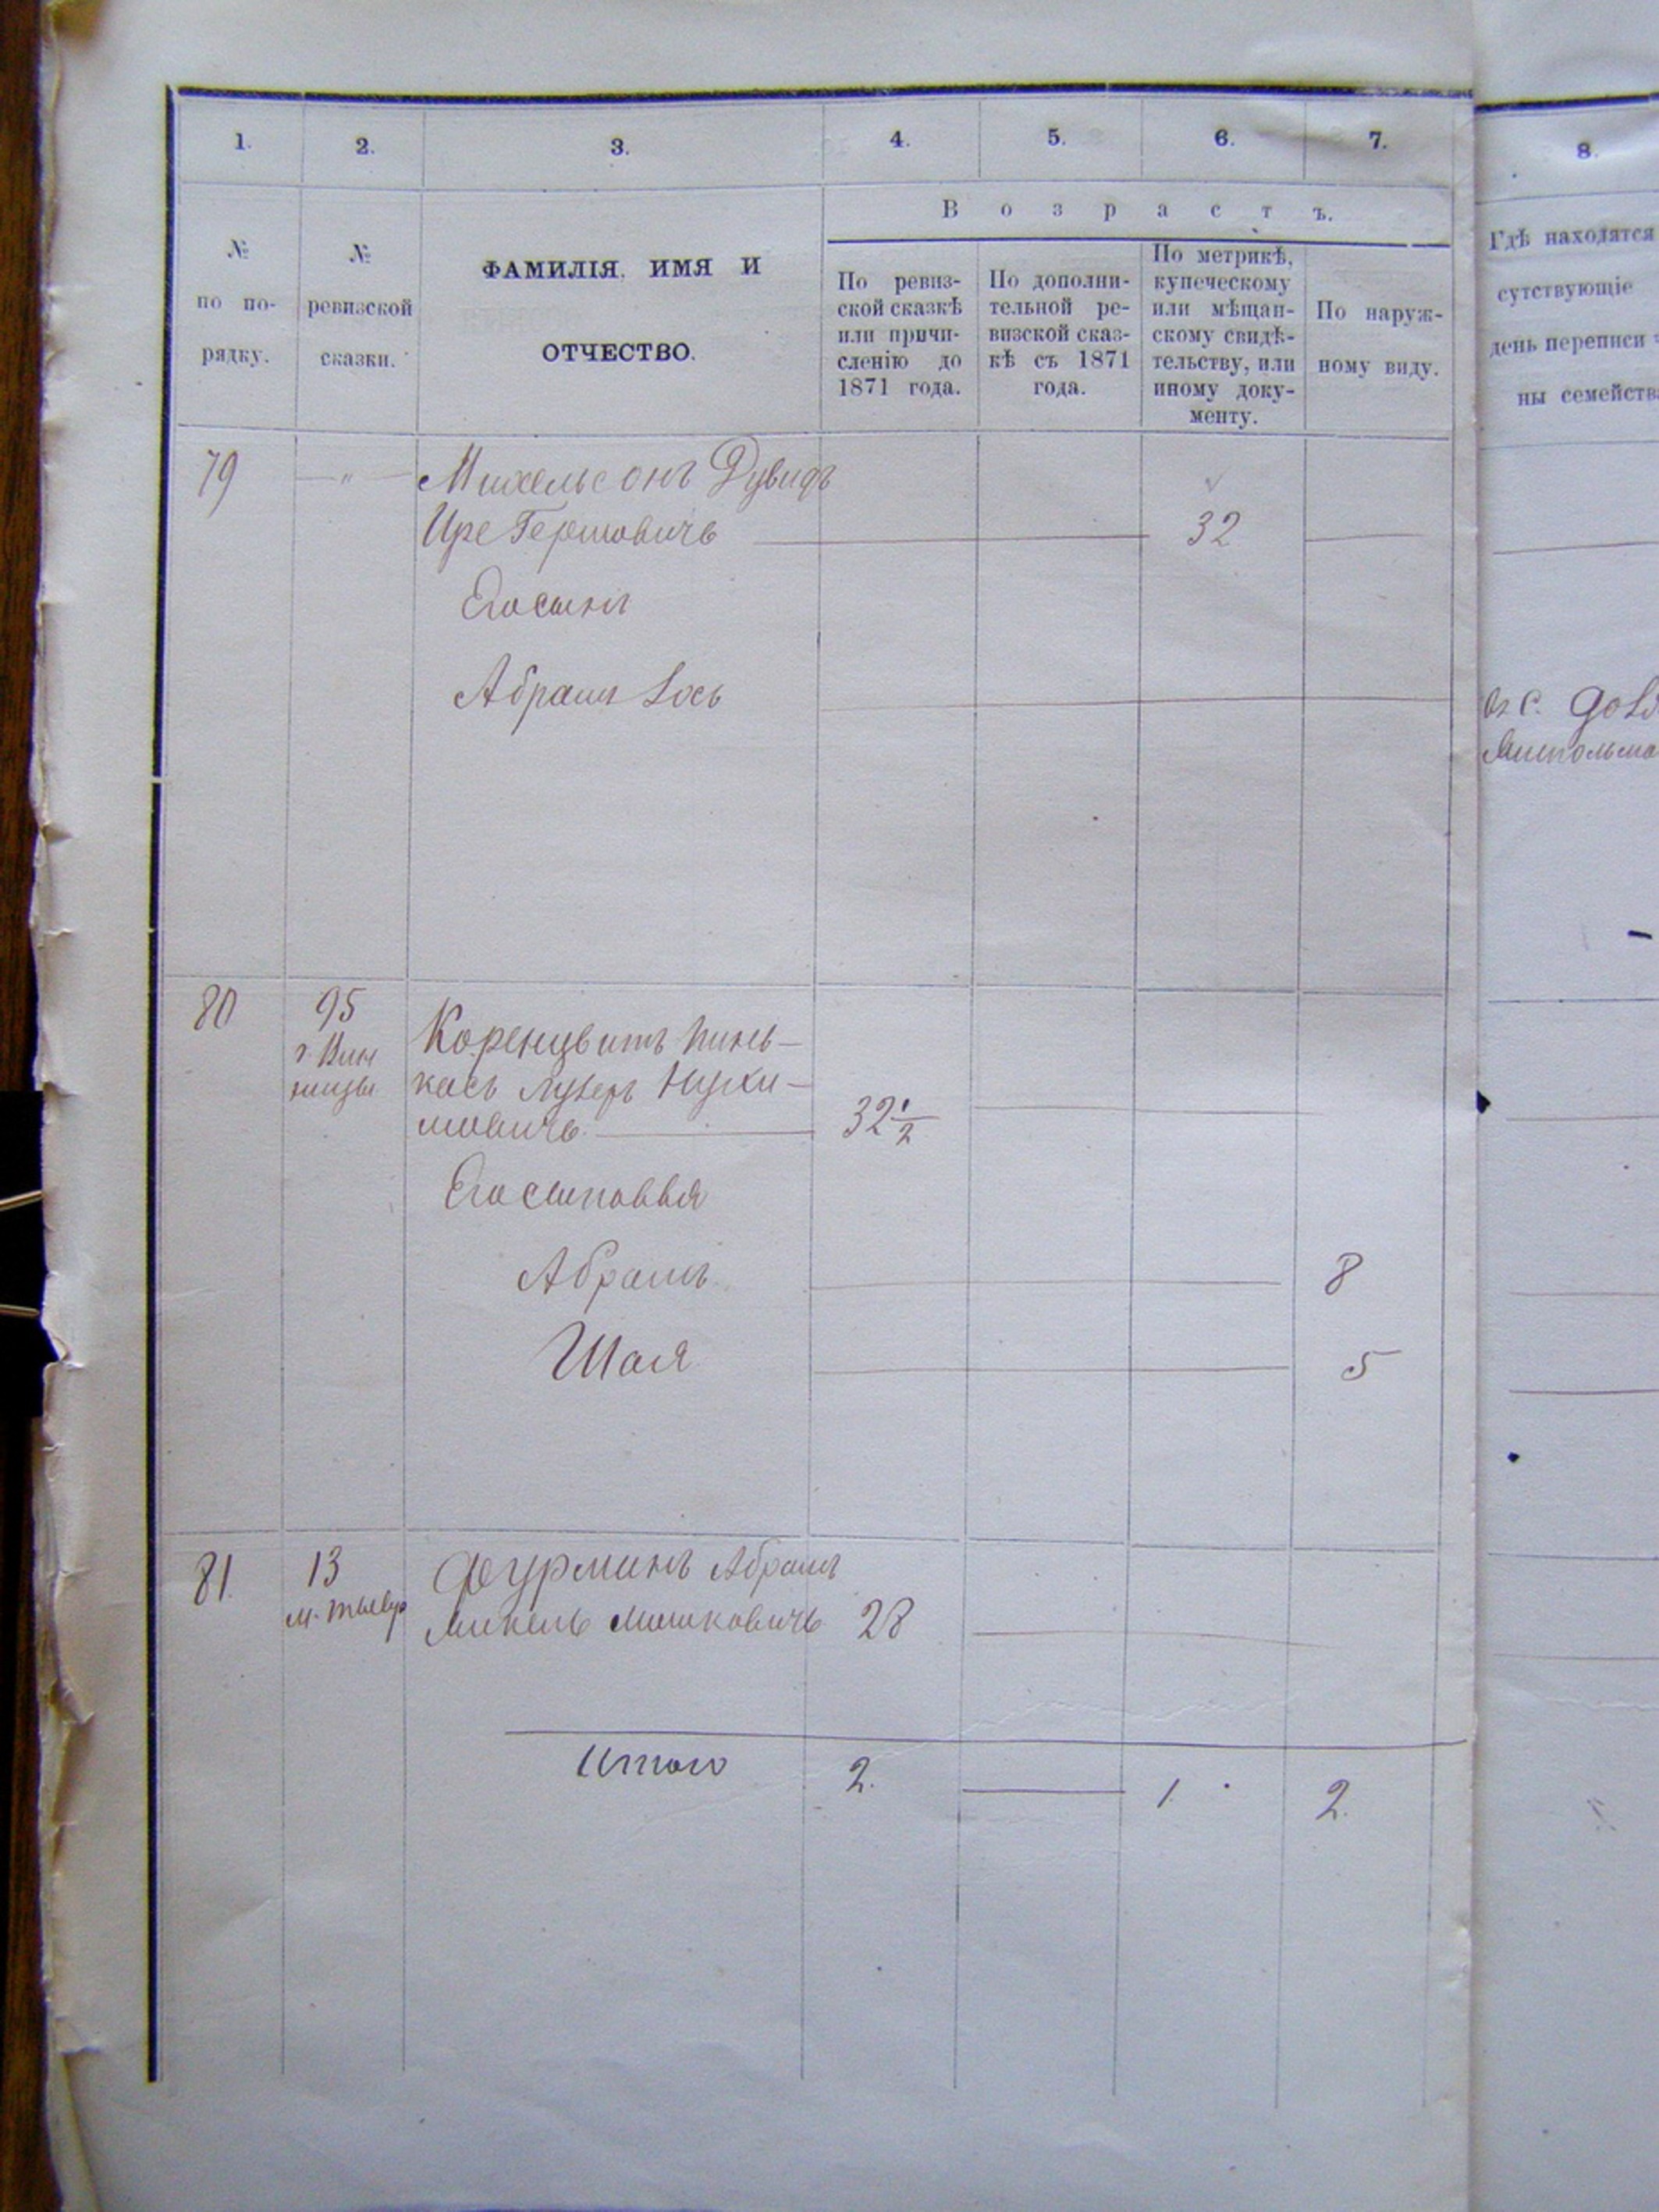 1. 2. 3. 4. 5. 6. 7. 8.
Возрастъ.
№ по по-
рядку.
№
ревизской
сказки.
ФАМИЛІЯ, ИМЯ И
ОТЧЕСТВО.
По ревиз-
ской сказкѣ
или причи-
сленію до
1871 года.
По дополни-
тельной ре-
визской сказ-
кѣ съ 1871
года.
По метрикѣ,
купеческому
или мѣщан-
скому свидѣ-
тельству, или
иному доку-
менту.
По наруж-
ному виду.
Гдѣ находятся
сутствующіе
день переписи
ны семейств
79 — „ — Михельсонъ Дувидъ
Гершовичъ 32
Его сынъ
Абрамъ Іось
80 95 Коренцвитъ Пинь-
г. Вин
ницы
касъ Лузеръ Нухи-
мовичъ 32 1/2
Его сыновья
Абрамъ 8
Шая 5
81. 13 Фурманъ Абрамъ
м. Тывр
Мошковичъ 28
Итого 2. 1. 2.